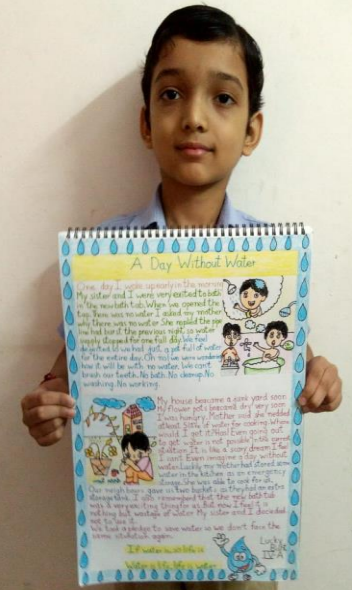 A Day Without Water
One day I woke up early in the morning
My sister and I were very excited to bath
in the new bath tub. When we opened the
tap. There was no water. I asked my mother
why there was no water. She replied the pipe
line had burst the previous night, so water
supply stopped for one full day. We feel
dejected. We had just a pot full of water
for the entire day. Oh no! we were wondering
how it will be with no water. We can't
brush our teeth. No bath. No cleanup. No
washing. No working.
My house became a junk yard soon.
My flower pots became dry very soon.
I was hungry. Mother said she needed
atleast 500ml of water for cooking. Where
would I get it? Even going out
to get water is not possible in this
situation. It is like a scary dream I feel.
I can't even imagine a day without
water. Lucky my mother had stored some
water in the kitchen as an emergency
storage. She was able to cook for us.
Our neighbours gave us two buckets as they had an extra
storage tank. I still remembered that the new bath tub
was a very exciting thing for us. But now I feel it is
nothing but wastage of water. My sister and I decided
not to use it.
We took a pledge to save water so we don't face the
same situation again.
If water is, so life is
Water is life, life is water
Lucky